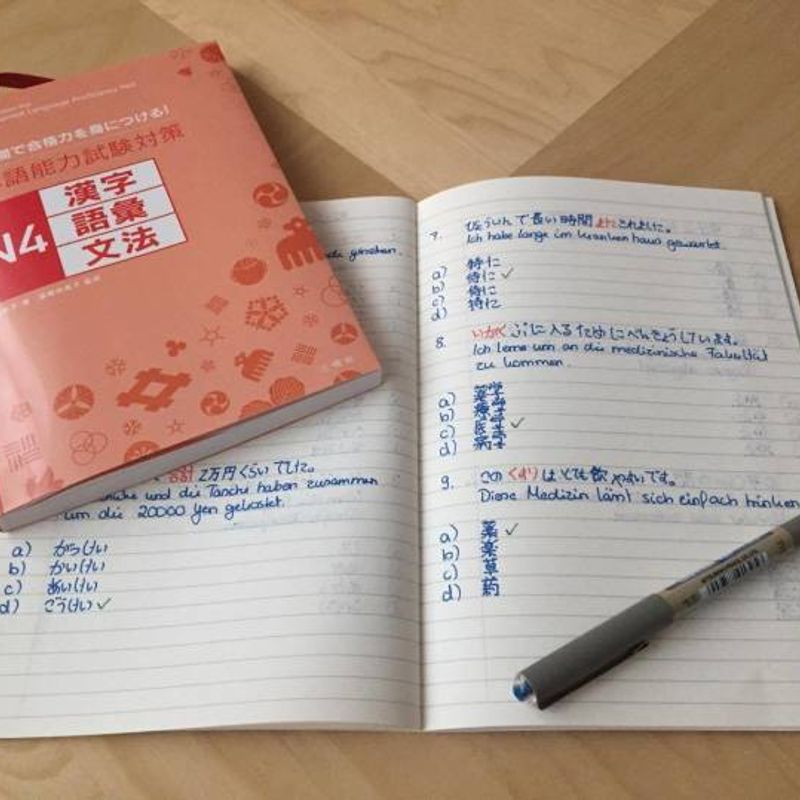 Language Proficiency Test
で合格力を身につける!
語能力試験対策
N4
漢字
語彙
文法
合計 2万円くらいでした。
und die Tasche haben zusammen
um die 20000 Yen gekostet.
a) がっけい
b) かいけい
c) あいけい
d) ごうけい ✓
7. びょういんで長い時間またされました。
Ich habe lange im Krankenhaus gewartet.
a) 特に
b) 待に ✓
c) 侍に
d) 持に
8. いがくぶに入るためにべんきょうしています。
Ich lerne um an die medizinische Fakultät
zu kommen.
a) 薬学
b) 療学
c) 医学 ✓
d) 病学
9. このくすりはとても飲やすいです。
Diese Medizin lämt sich einfach trinken
a) 薬 ✓
b) 楽
c) 草
d) 药